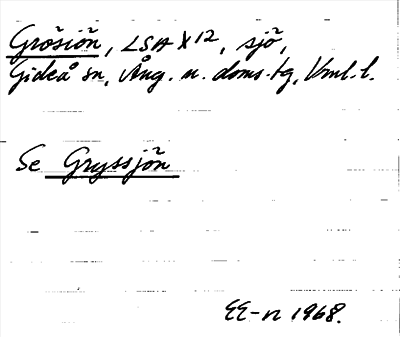 Grösiön, LSA X12, sjö,
Gideå sn, Ång. n. doms.-tg, Vnl. l.
Se Gryssjön
EE-n 1968.